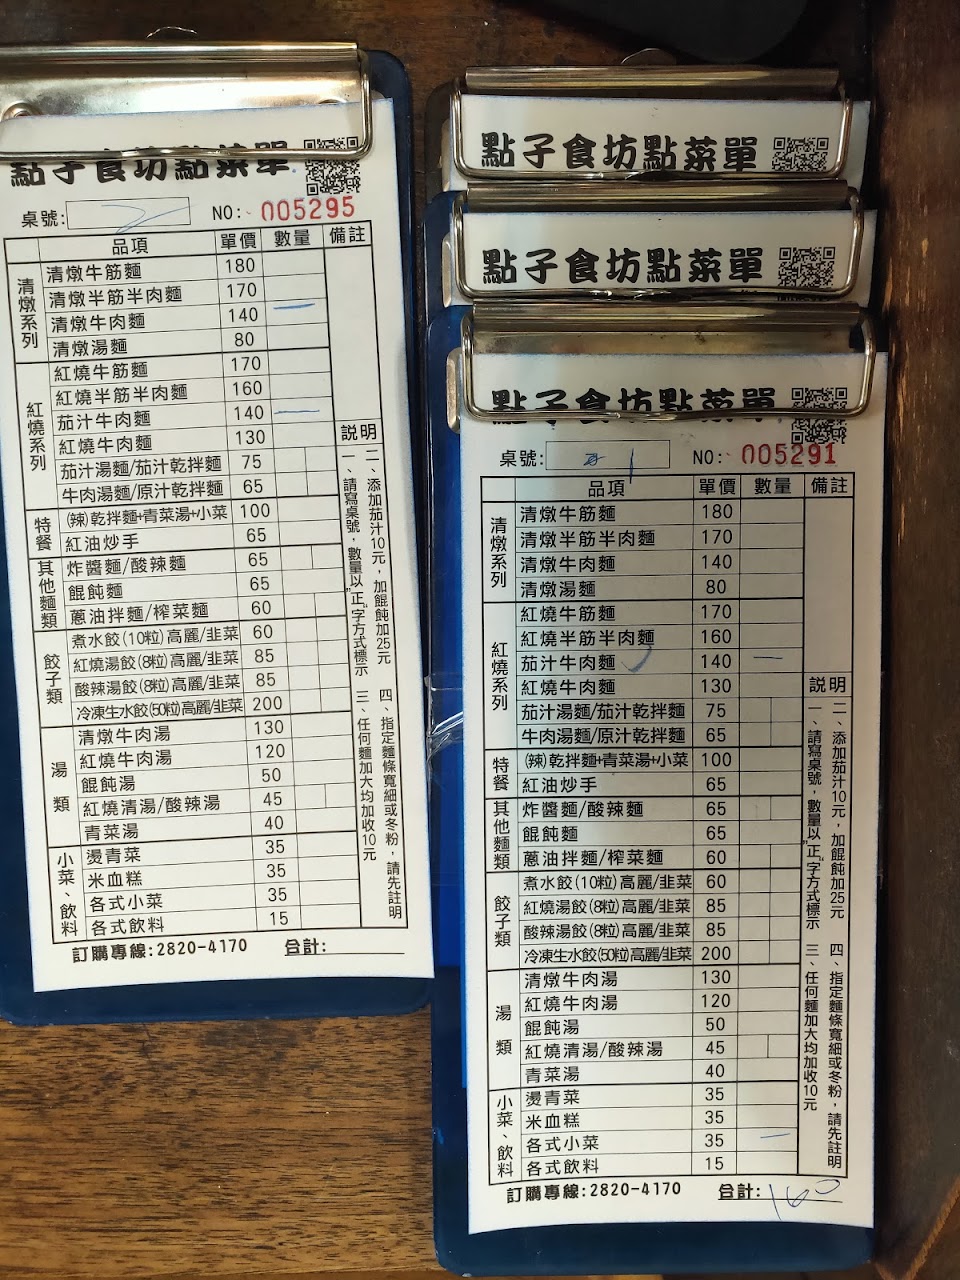 點子食坊點菜單
桌號: 2 NO: 005295
品項 單價 數量 備註
清燉系列
清燉牛筋麵 180
清燉半筋半肉麵 170
清燉牛肉麵 140 一
清燉湯麵 80
紅燒系列
紅燒牛筋麵 170
紅燒半筋半肉麵 160
茄汁牛肉麵 140 一
紅燒牛肉麵 130
茄汁湯麵/茄汁乾拌麵 75
牛肉湯麵/原汁乾拌麵 65
特餐
(辣)乾拌麵+青菜湯+小菜 100
紅油炒手 65
其他麵類
炸醬麵/酸辣麵 65
餛飩麵 65
蔥油拌麵/榨菜麵 60
餃子類
煮水餃(10粒)高麗/韭菜 60
紅燒湯餃(8粒)高麗/韭菜 85
酸辣湯餃(8粒)高麗/韭菜 85
冷凍生水餃(50粒)高麗/韭菜 200
湯類
清燉牛肉湯 130
紅燒牛肉湯 120
餛飩湯 50
紅燒清湯/酸辣湯 45
青菜湯 40
小菜、飲料
燙青菜 35
米血糕 35
各式小菜 35
各式飲料 15
說明
一、請寫桌號，數量以"正"字方式標示
二、添加茄汁10元，加餛飩加25元
三、任何麵加大均加收10元
四、指定麵條寬細或冬粉，請先註明
訂購專線:2820-4170 合計:
點子食坊點菜單
點子食坊點菜單
點子食坊點菜單
桌號: 1 NO: 005291
品項 單價 數量 備註
清燉系列
清燉牛筋麵 180
清燉半筋半肉麵 170
清燉牛肉麵 140
清燉湯麵 80
紅燒系列
紅燒牛筋麵 170
紅燒半筋半肉麵 160
茄汁牛肉麵 140 一
紅燒牛肉麵 130
茄汁湯麵/茄汁乾拌麵 75
牛肉湯麵/原汁乾拌麵 65
特餐
(辣)乾拌麵+青菜湯+小菜 100
紅油炒手 65
其他麵類
炸醬麵/酸辣麵 65
餛飩麵 65
蔥油拌麵/榨菜麵 60
餃子類
煮水餃(10粒)高麗/韭菜 60
紅燒湯餃(8粒)高麗/韭菜 85
酸辣湯餃(8粒)高麗/韭菜 85
冷凍生水餃(50粒)高麗/韭菜 200
湯類
清燉牛肉湯 130
紅燒牛肉湯 120
餛飩湯 50
紅燒清湯/酸辣湯 45
青菜湯 40
小菜、飲料
燙青菜 35
米血糕 35
各式小菜 35 一
各式飲料 15
說明
一、請寫桌號，數量以"正"字方式標示
二、添加茄汁10元，加餛飩加25元
三、任何麵加大均加收10元
四、指定麵條寬細或冬粉，請先註明
訂購專線:2820-4170 合計: 160